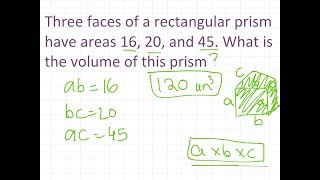 Three faces of a rectangular prism
have areas 16, 20, and 45. What is
the volume of this prism ?
ab=16
bc=20
ac=45
120 un³
c
a
b
a×b×c